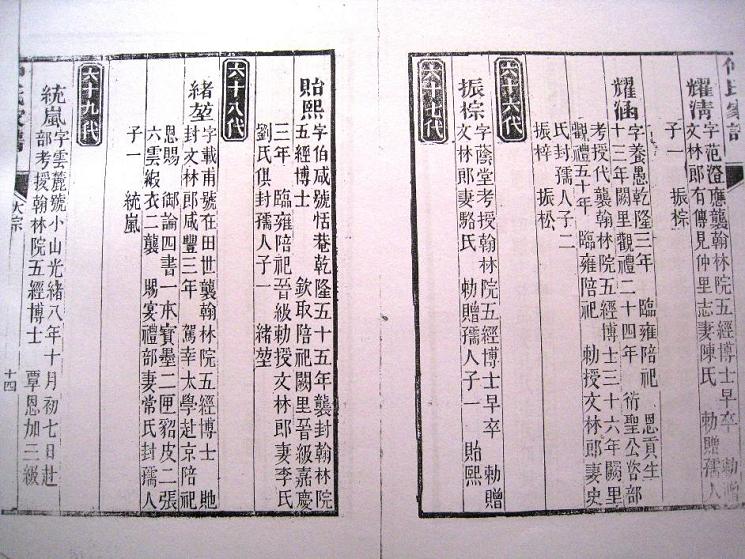 仲氏家譜
耀清 字范澄應襲翰林院五經博士早卒 勅贈
文林郎有傳見仲里志妻陳氏 勅贈孺人
子一 振棕
耀涵 字養愚乾隆三年 臨雍陪祀 恩貢生
十三年闕里觀禮二十四年 衍聖公咨部
考授代襲翰林院五經博士三十六年闕里
觀禮五十年 臨雍陪祀 勅授文林郎妻史
氏封孺人子二
振棕 振松
六十六代
振棕 字蔭堂考授翰林院五經博士早卒 勅贈
文林郎妻駱氏 勅贈孺人子一 貽熙
六十七代
貽熙 字伯咸號恬菴乾隆五十五年襲封翰林院
五經博士 欽取陪祀闕里晉級嘉慶
三年 臨雍陪祀晉級勅授文林郎妻李氏
劉氏俱封孺人子一 緒堃
六十八代
緒堃 字載甫號在田世襲翰林院五經博士 貤
封文林郎咸豐三年 駕幸太學赴京陪祀
恩賜 御論四書一本寶墨二匣貂皮二張
六雲緞衣二襲 賜宴禮部妻常氏封孺人
子一 統嵐
六十九代
統嵐 字雲麓號小山光緒八年十月初七日赴
部考授翰林院五經博士 覃恩加三級
大宗
十四